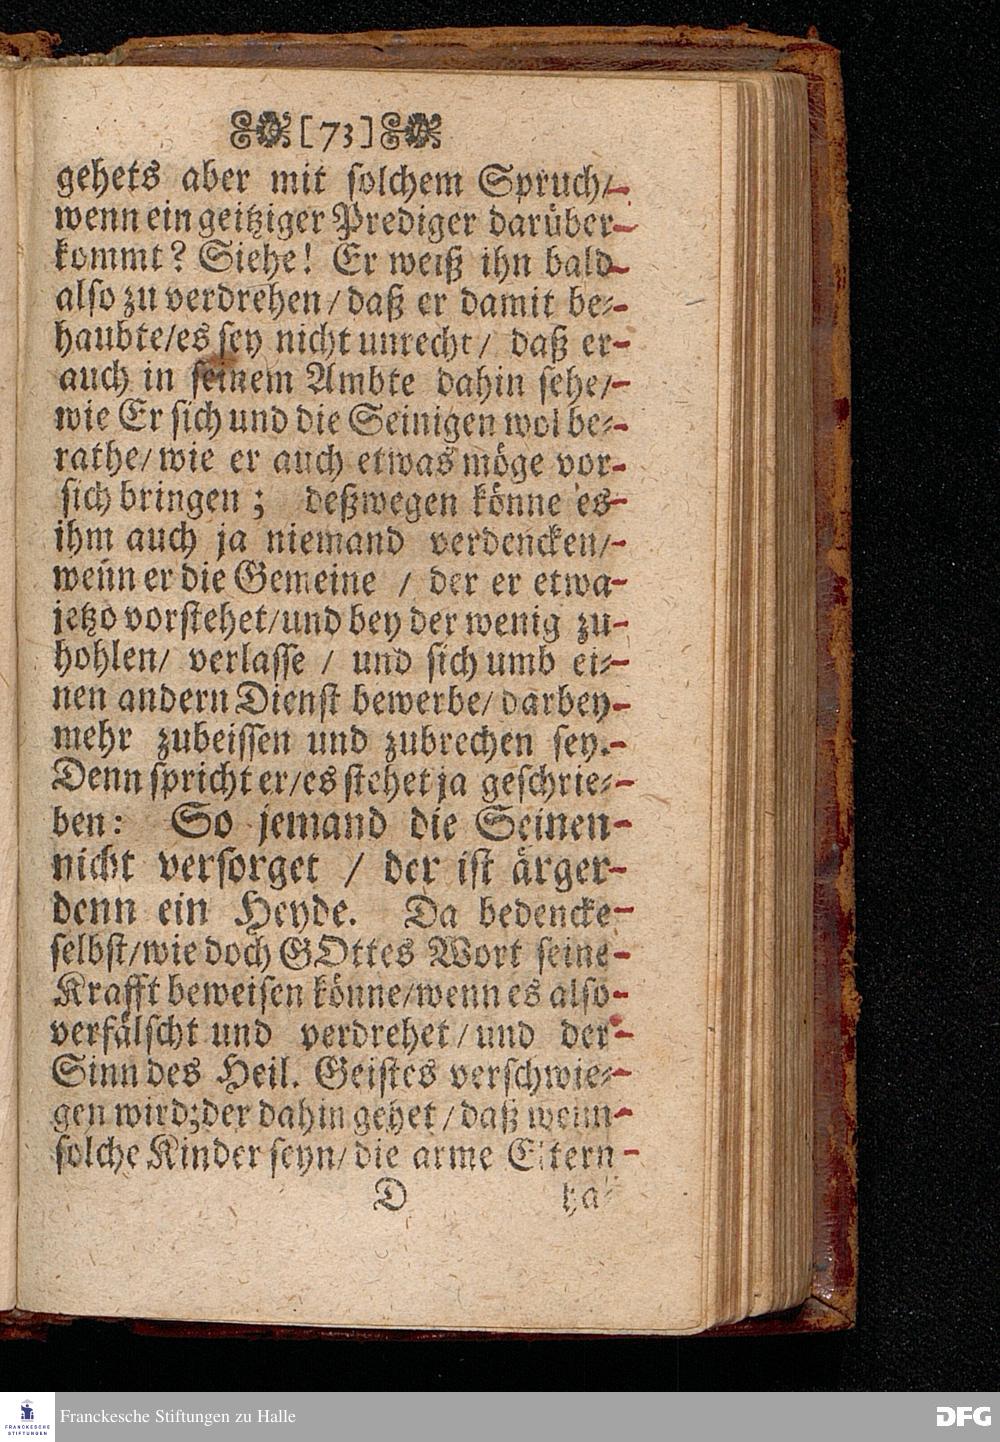 [73]
gehets aber mit solchem Spruch/
wenn ein geitziger Prediger darüber
kommt? Siehe! Er weiß ihn bald
also zu verdrehen/ daß er damit be⸗
haubte/ es sey nicht unrecht/ daß er
auch in seinem Ambte dahin sehe/
wie Er sich und die Seinigen wol be⸗
rathe/ wie er auch etwas möge vor
sich bringen; deßwegen könne es
ihm auch ja niemand verdencken/
wenn er die Gemeine / der er etwa
jetzo vorstehet/ und bey der wenig zu
hohlen/ verlasse / und sich umb ei⸗
nen andern Dienst bewerbe/ darbey
mehr zubeissen und zubrechen sey.
Denn spricht er/ es stehet ja geschrie⸗
ben: So jemand die Seinen
nicht versorget / der ist ärger
denn ein Heyde. Da bedencke
selbst/ wie doch GOttes Wort seine
Krafft beweisen könne/ wenn es also
verfälscht und verdrehet/ und der
Sinn des Heil. Geistes verschwie⸗
gen wird; der dahin gehet/ daß wenn
solche Kinder seyn/ die arme Eltern
D ha⸗
FRANCKESCHE STIFTUNGEN
Franckesche Stiftungen zu Halle
DFG